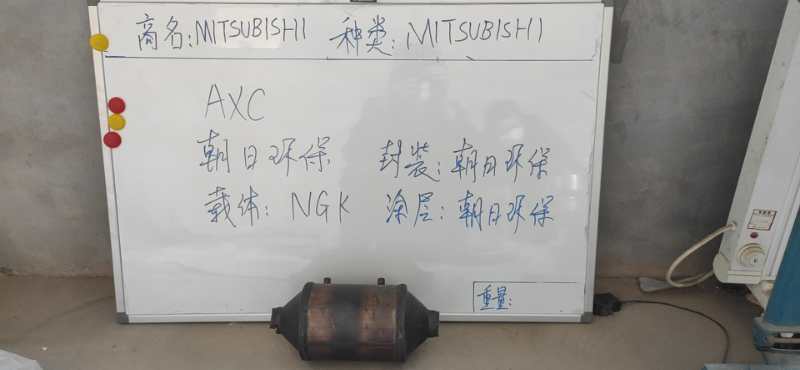 商名:MITSUBISHI 种类:MITSUBISHI
AXC
朝日环保 封装:朝日环保
载体:NGK 涂层:朝日环保
重量: